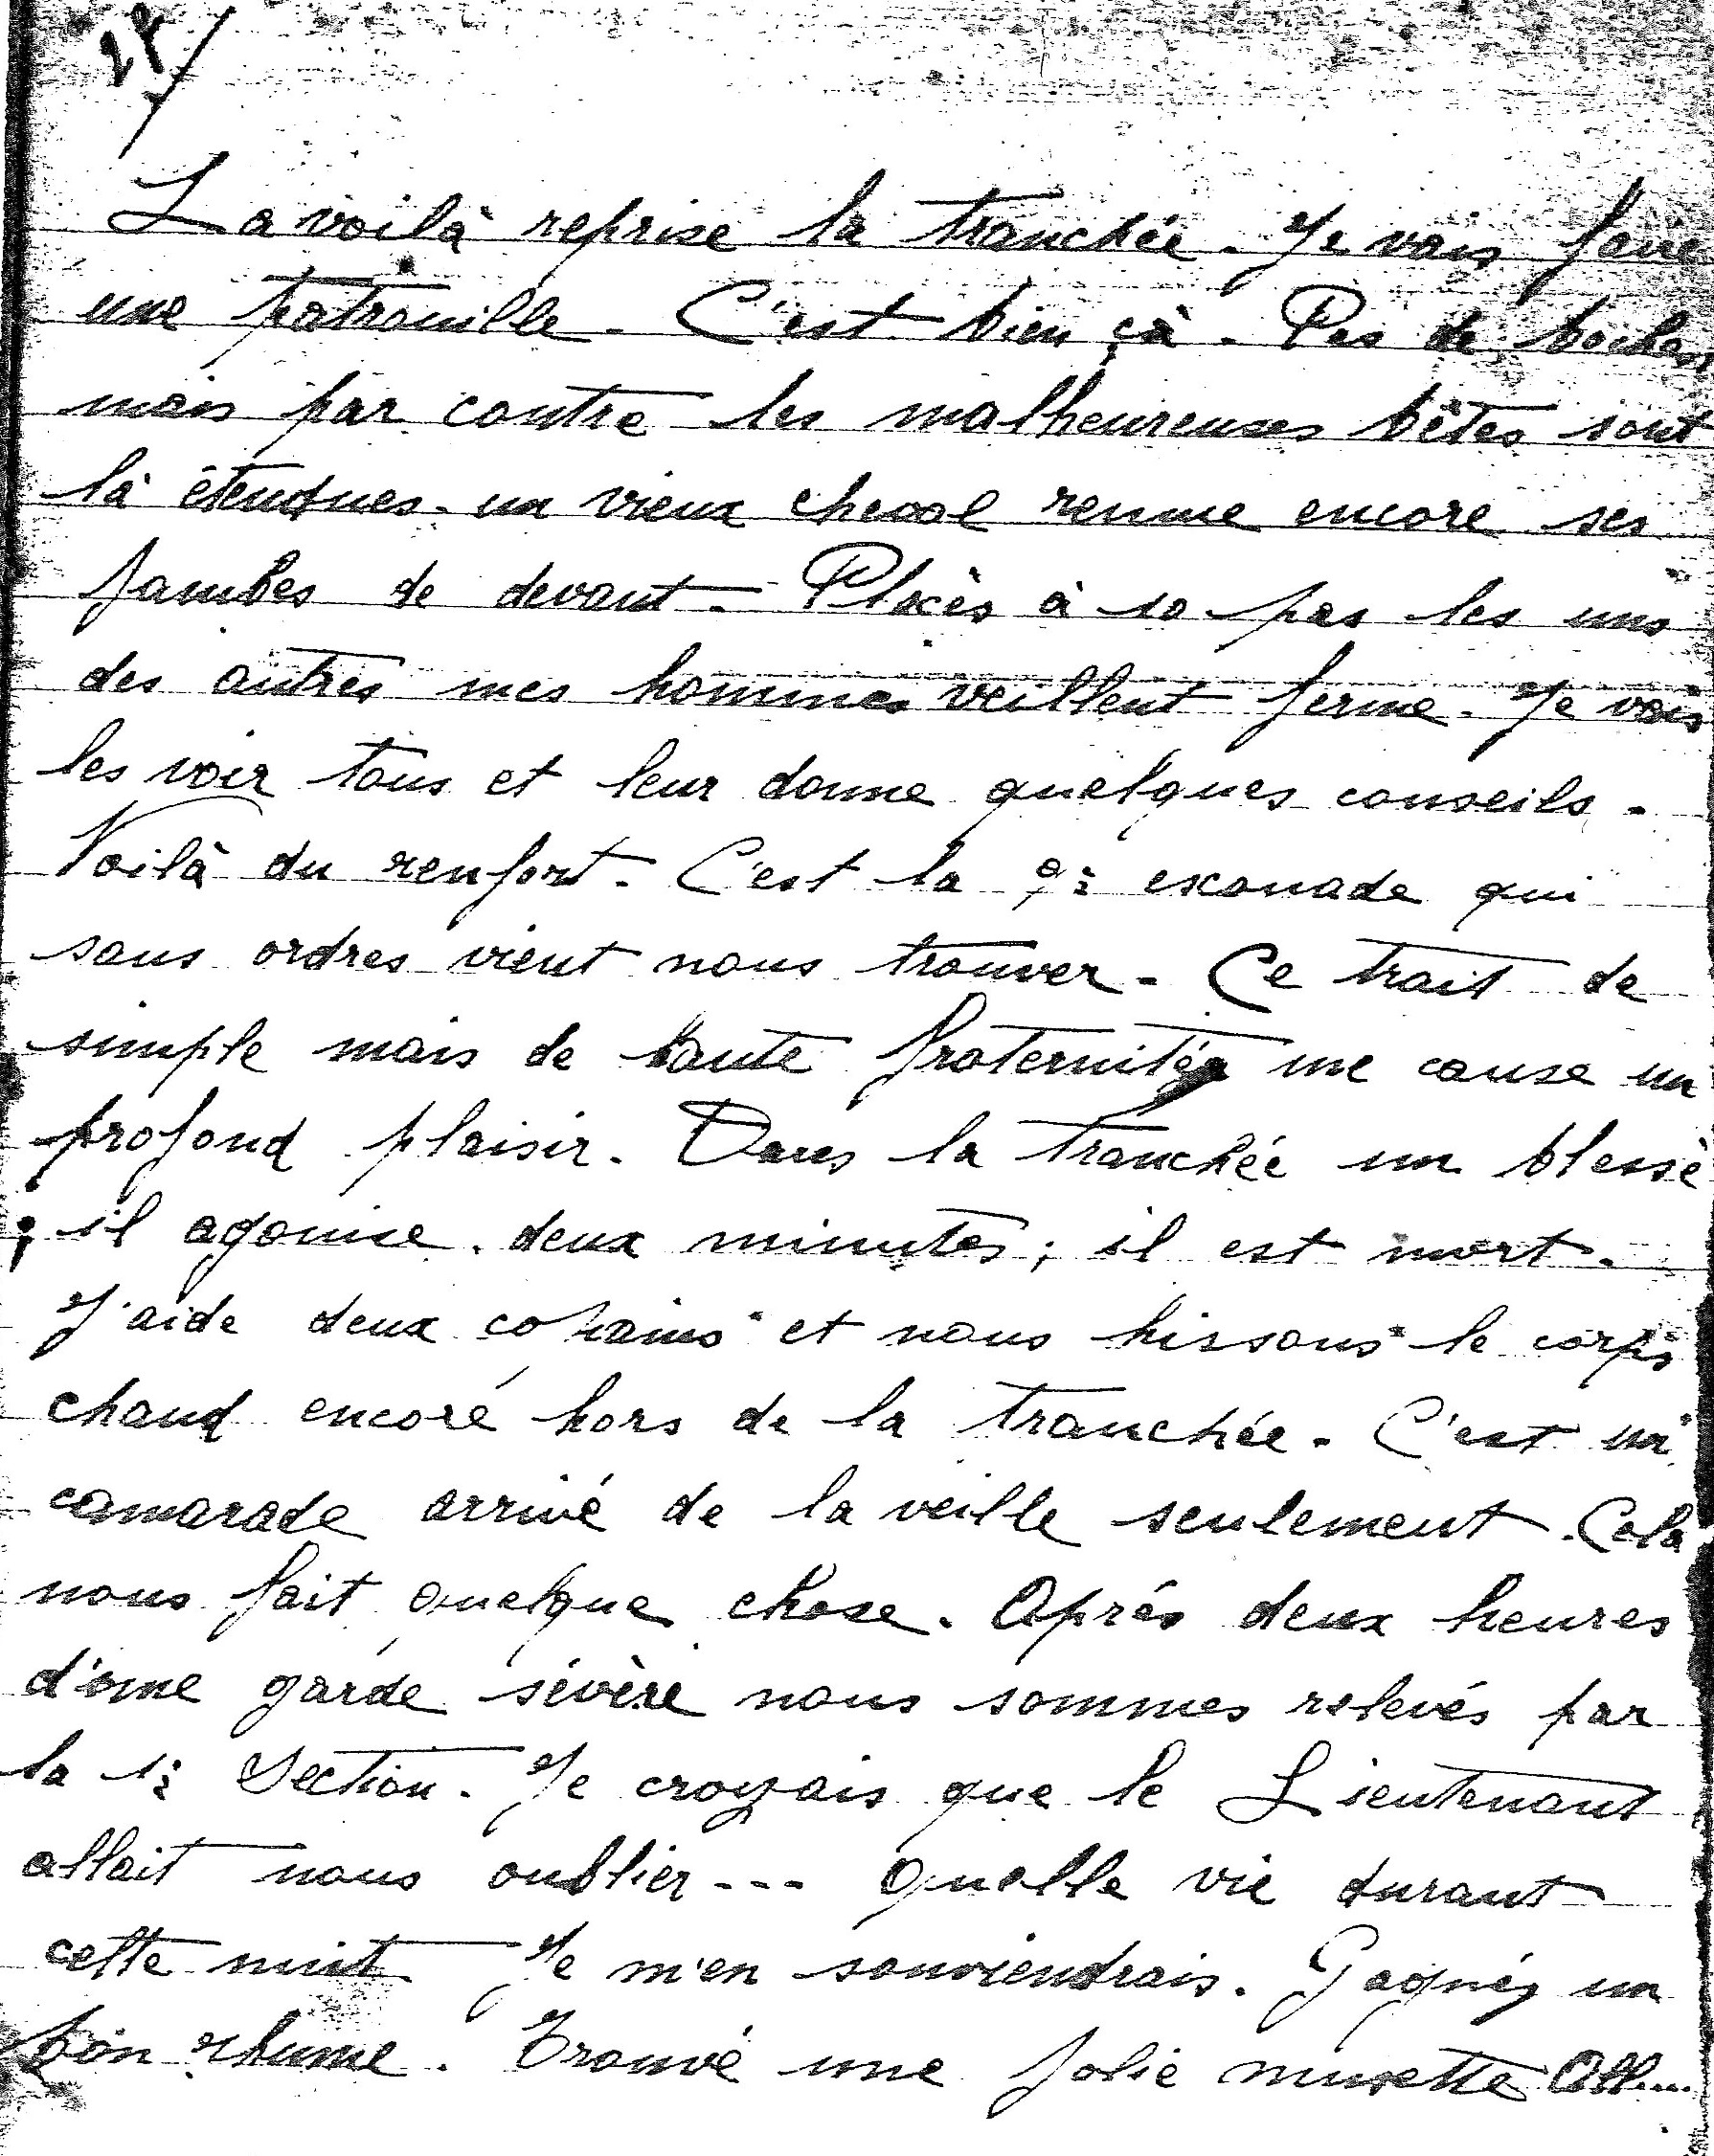 La voilà reprise la tranchée. Je vais faire
une patrouille. C'est bien çà. Pas de boches
mais par contre les malheureuses bêtes sont
là étendues. un vieux cheval remue encore ses
jambes de devant. Placés à 10 pas les uns
des autres mes hommes veillent ferme. Je vais
les voir tous et leur donne quelques conseils.
Voilà du renfort. C'est la 9è escouade qui
sans ordres vient nous trouver. Ce trait de
simple mais de haute fraternité me cause un
profond plaisir. Dans la tranchée un blessé
; il agonise. deux minutes ; il est mort.
J'aide deux copains et nous hissons le corps
chaud encore hors de la tranchée. C'est un
camarade arrivé de la veille seulement. Cela
nous fait quelque chose. Après deux heures
d'une garde sévère nous sommes relevés par
la 1è Section. Je croyais que le Lieutenant
allait nous oublier --- Quelle vie durant
cette nuit. Je m'en souviendrais. Gagnés un
bon rhume. Trouvé une jolie musette